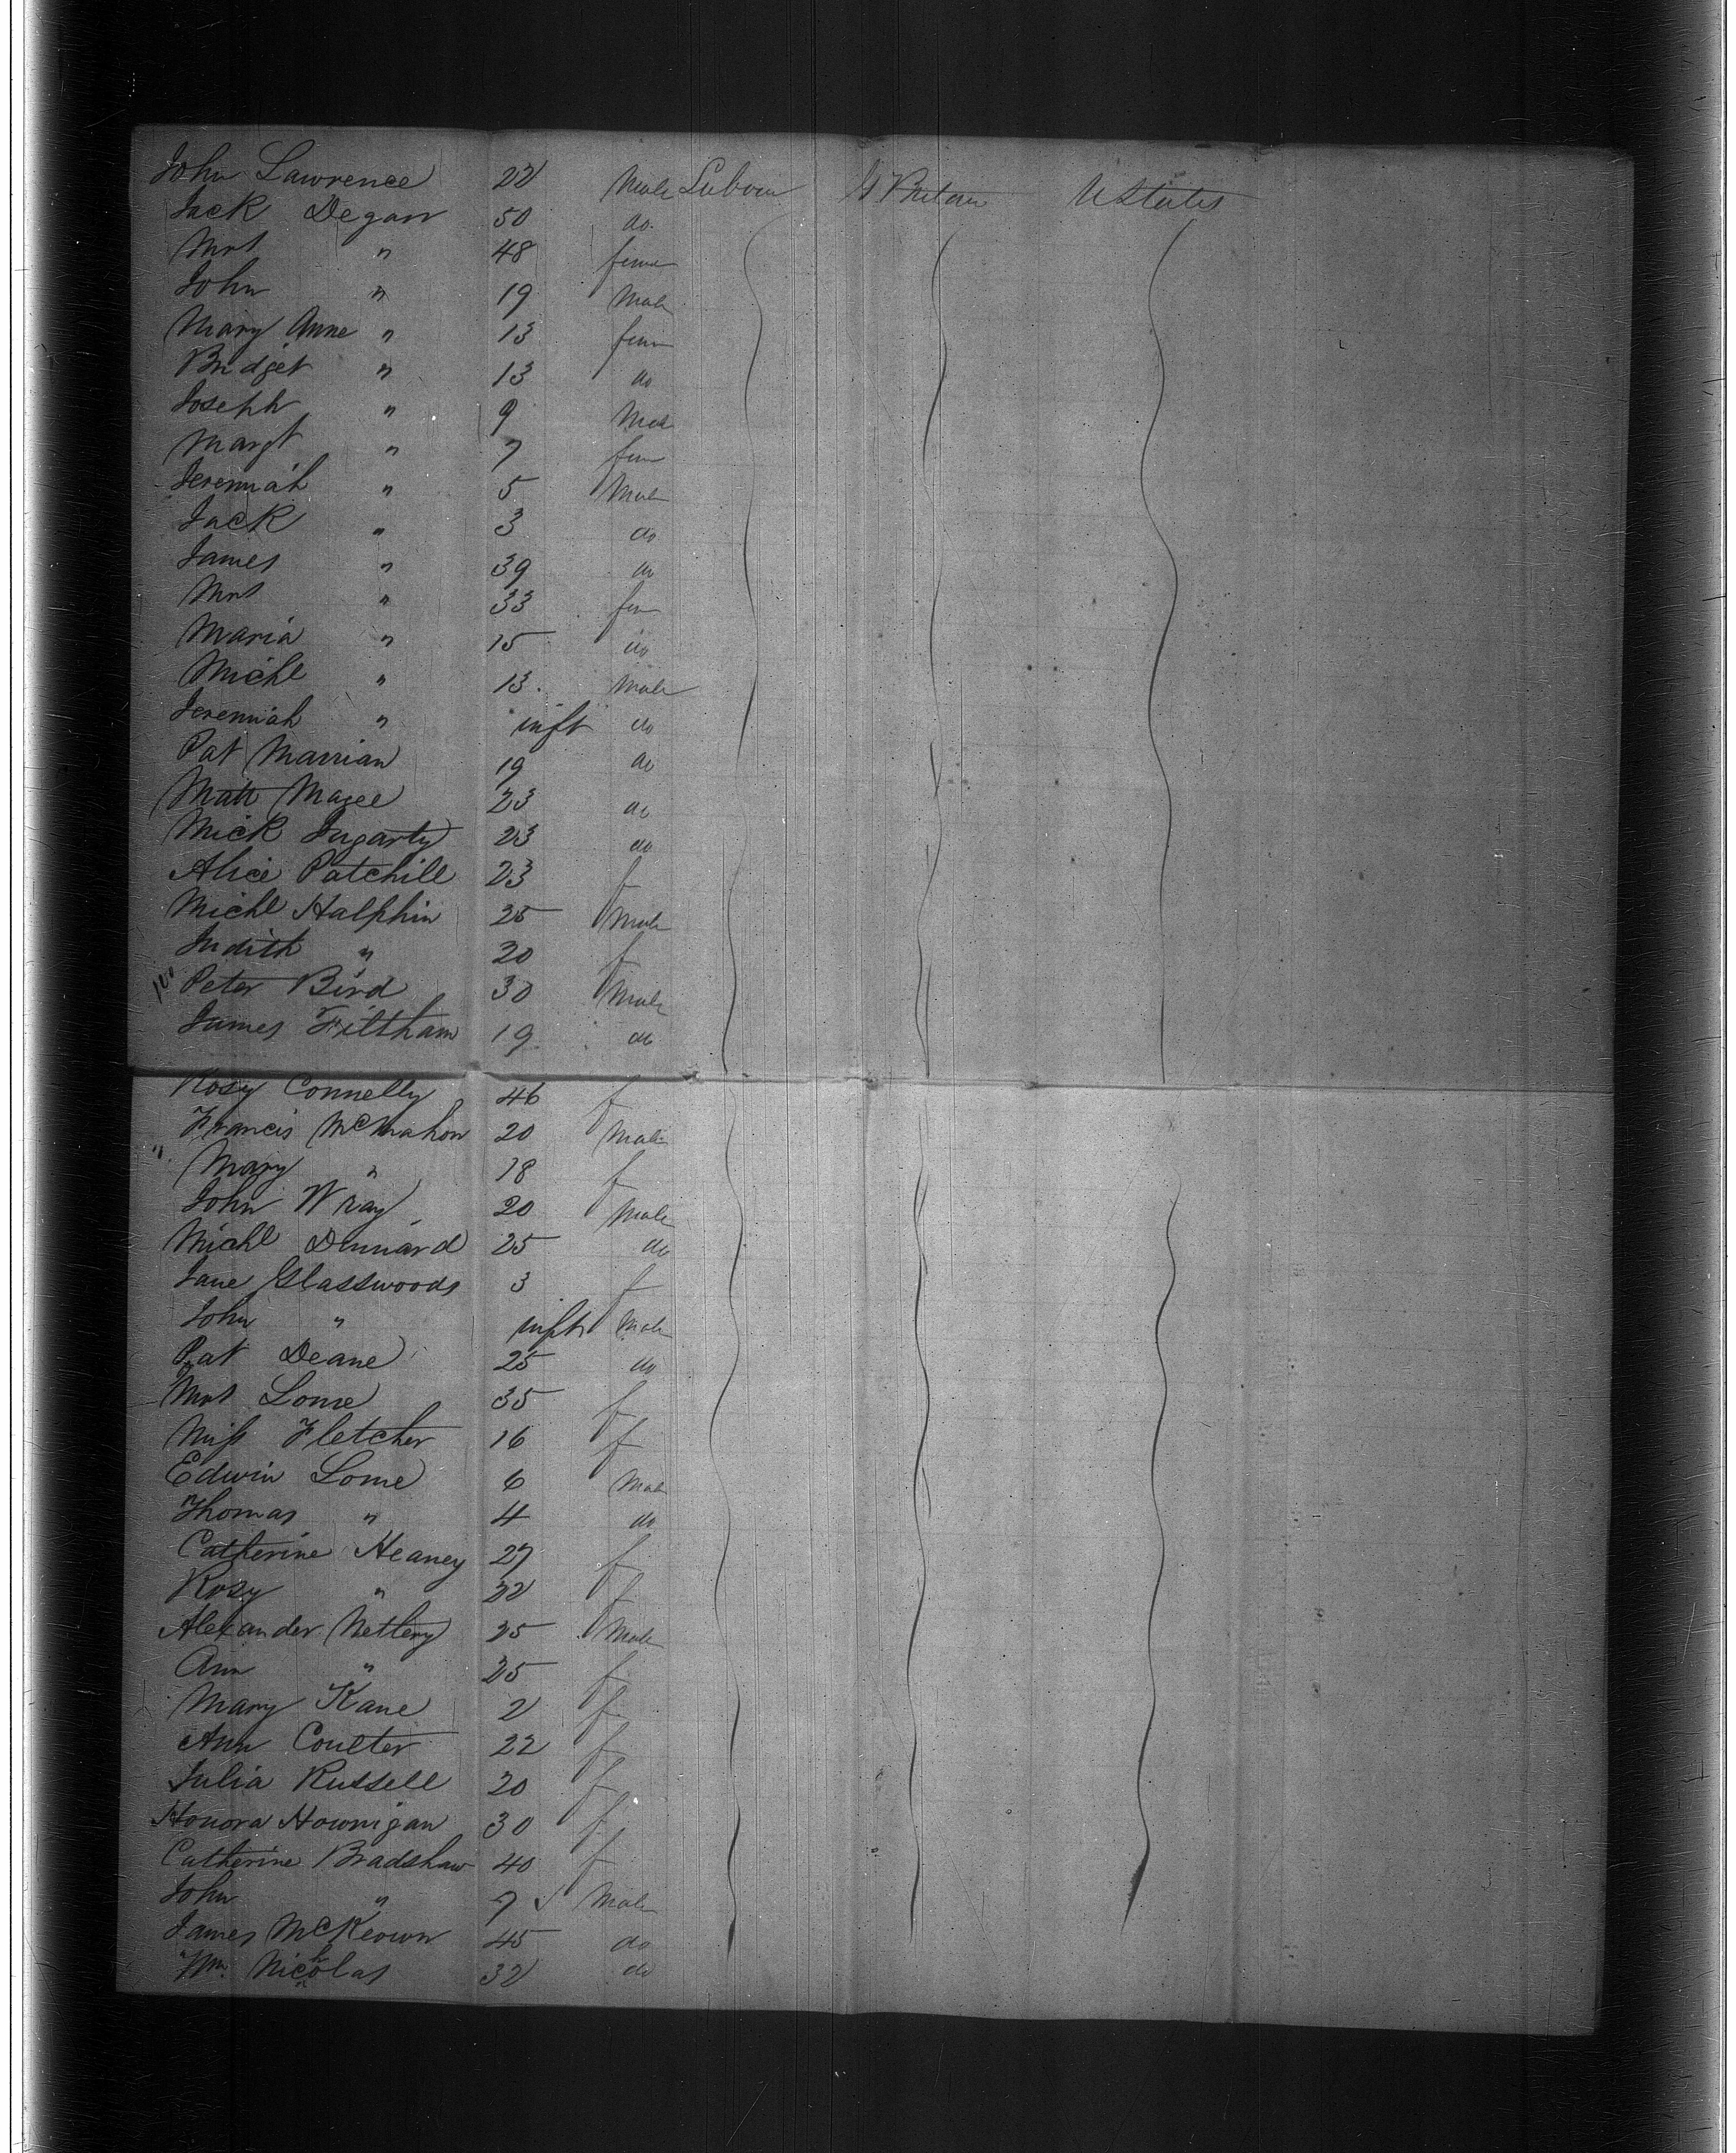 John Lawrence 22 Male Labour G Britain U States
Jack Degan 50 do.
Mrs " 48 feme
John " 19 Male
Mary Anne " 13 fem
Bridget " 13 do
Joseph " 9 Male
Margt " 7 fem
Jeremiah " 5 Male
Jack " 3 do
James " 39 do
Mrs " 33 fem
Maria " 15 do
Michl " 13. Male
Jeremiah " inft do
Pat Marrian 19 do
Matt Magee 23 do
Mick Fugarty 23 do
Alice Patchill 23 f
Michl Halphin 25 Male
Judith " 20 f
100 Peter Bird 30 Male
James Filtham 19. do
Rosy Connelly 46 f
Francis McMahon 20 Male
" Mary " 18 f
John Wray 20 Male
Michl Dinnard 25 do
Jane Glasswoods 3 f
John " inft Male
Pat Deane 25 do
Mrs Lome 35 f
Miss Fletcher 16 f
Edwin Lome 6 Male
Thomas " 4 do
Catherine Heaney 27 f
Rosy " 22 f
Alexander Nettery 25 Male
Ann " 25 f
Mary Kane 2 f
Ann Coulter 22 f
Julia Russell 20 f
Honora Hownigan 30 f
Catherine Bradshaw 40 f
John " 7 ✓ Male
James McKeown 45 do
Wm. Nicholas 32 do